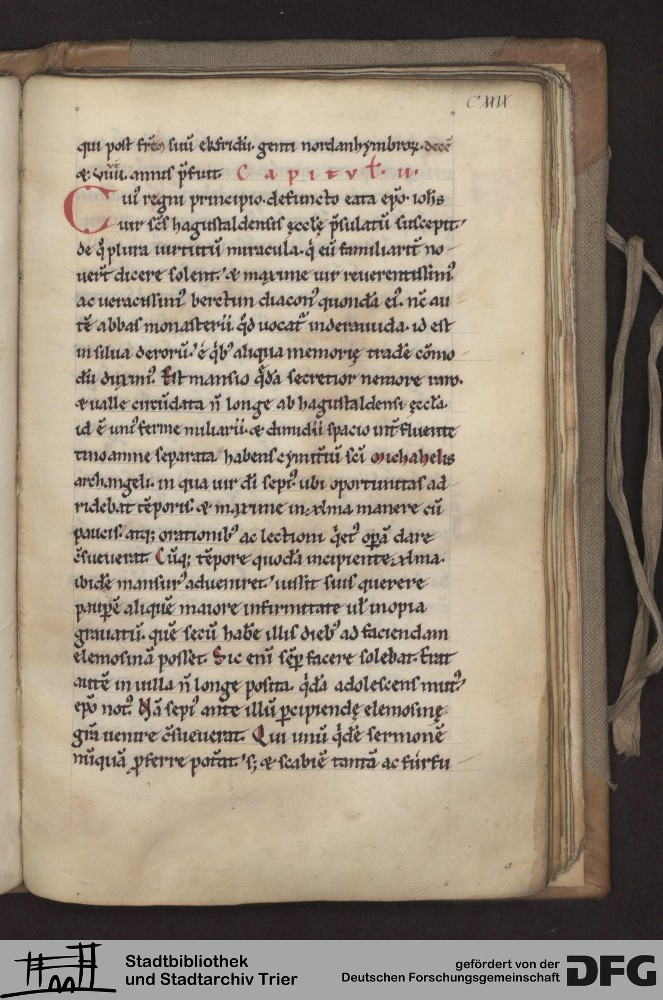 CXIIII
qui post frēm suū ekfridū· genti nordanhẏmbroꝝ· decē
& viiii· annis p̄fuit· Capitul̄· ii·
Cui' regni principio· defuncto eata ep̄o· ioh̄s
uir sc̄s hagustaldensis ęccłę p̄sulatū suscepit·
de q̊ plura uirtutū miracula· q̇ eū familiarit̄ no-
uer̄t dicere solent· & maxime uir reuerentissim'
ac ueracissim' beretun diacon' quondā ei'· nc̄ au-
tē abbas monasterii· qd̄ uocat̄ inderauuida· id est
in silua derorū· ē q̇b' aliqua memorię tradē cōmo-
dū duxim'· Est mansio q̄dā secretior nemore raro·
& ualle circūdata n̄ longe ab hagustaldensi ęccła·
id ē uni' ferme miliarii· & dimidii spacio int̄fluente
tino amne separata habens cẏmit̄iū sc̄i michahelis
archangeli· in qua uir dī sepi'· ubi oportunitas ad-
ridebat tēporis· & maxime in xlma manere cū
paucis· atq; orationib' ac lectioni q̇et' op̄ā dare
c̄sueuerat· Cūq; tēpore quodā incipiente xlma·
ibidē mansur' adueniret· iussit suis querere
paupē aliquē maiore infirmitate uł inopia
grauatū· quē secū habē illis dieb' ad faciendam
elemosinā posset· Sic enī sēp facere solebat· Erat
autē in uilla n̄ longe posita· q̇dā adolescens mut'
ep̄o not'· Nā sepi' ante illū p̄cipiendę elemosinę
grā uenire c̄sueuerat· Qui unū q̇dē sermonē
nūquā p̄ferre pot̄at· s; & scabiē tantā ac furfu-
Stadtbibliothek
und Stadtarchiv Trier
gefördert von der
Deutschen Forschungsgemeinschaft
DFG